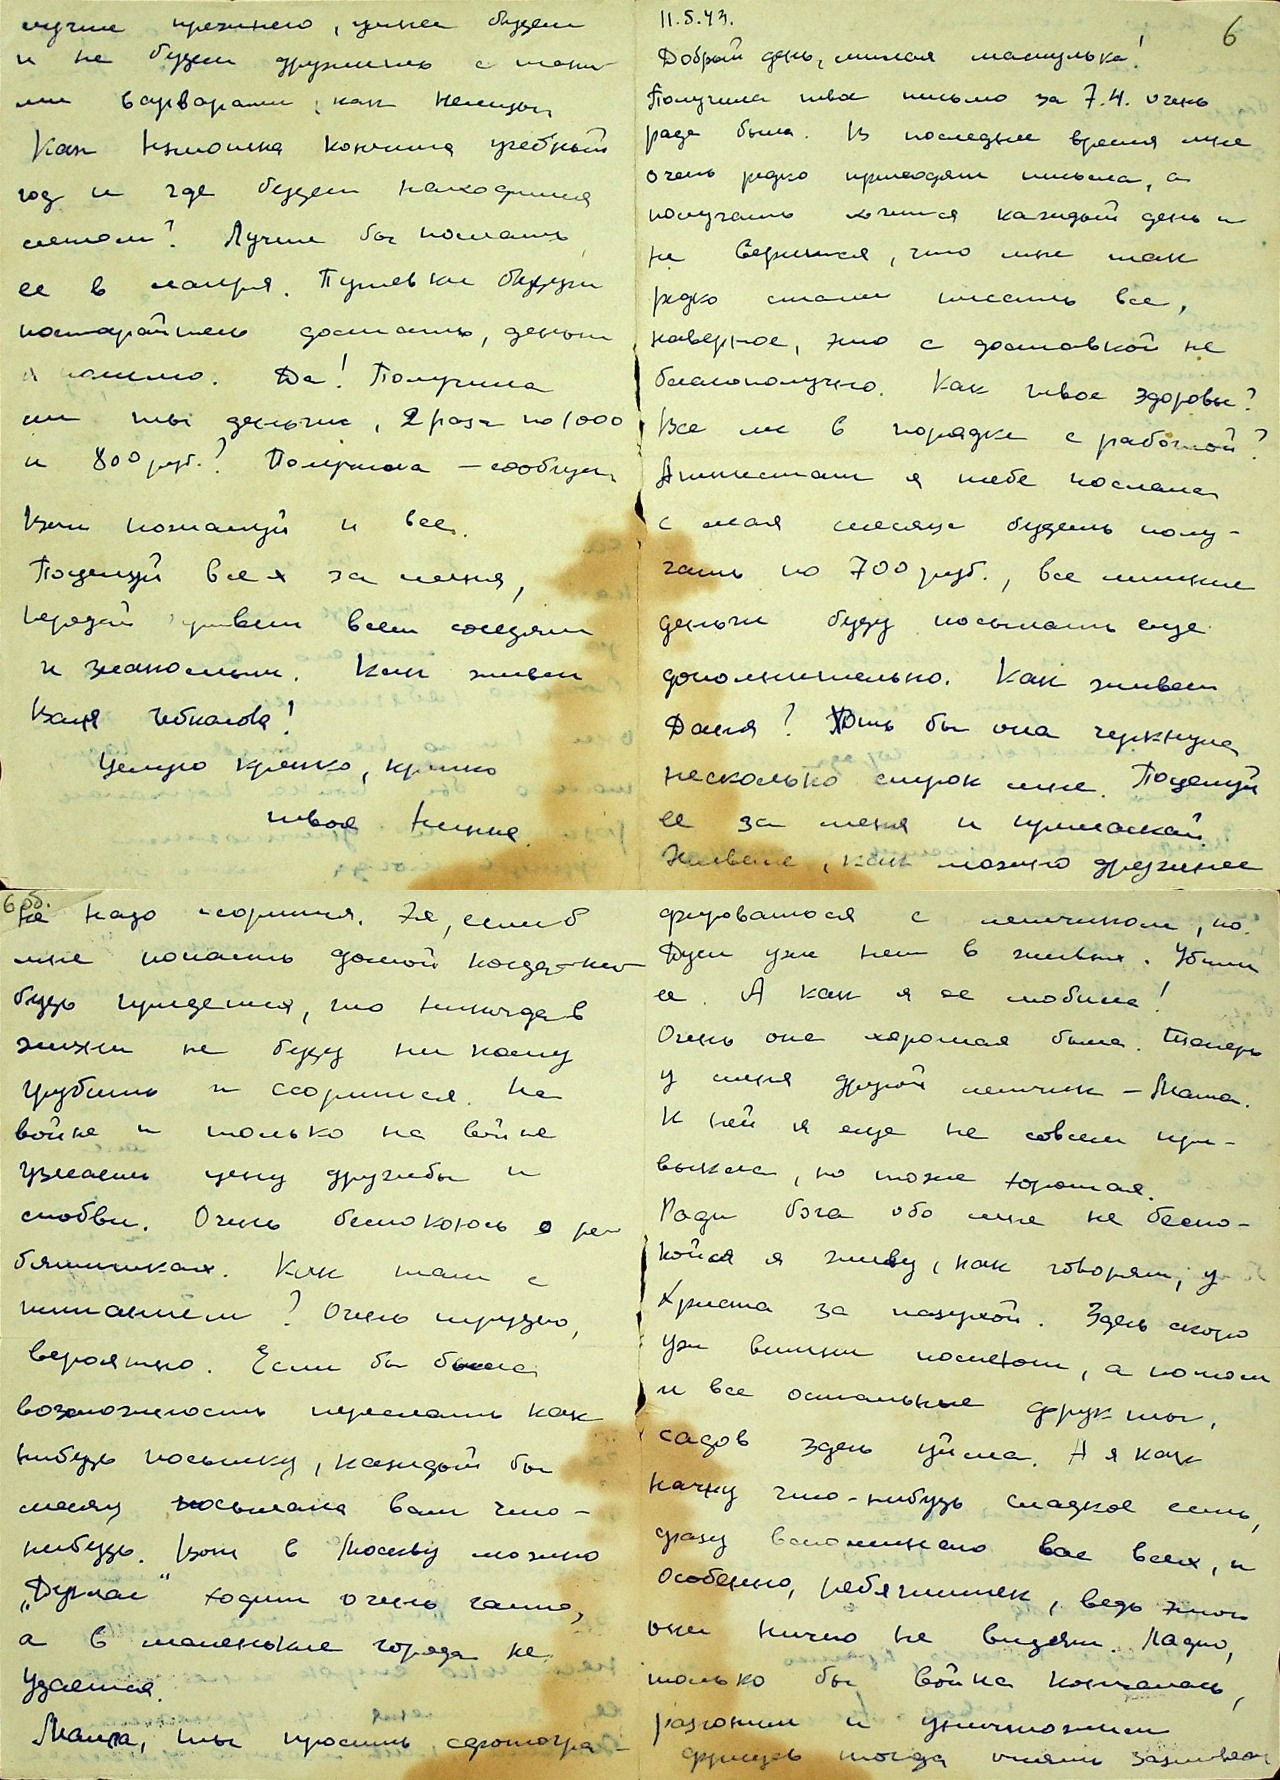 11.5.43.
6
Добрый день, милая мамулька!
Получила твое письмо за 7.4. очень
рада была. В последнее время мне
очень редко приходят письма, а
получать хочется каждый день и
не верится, что мне так
редко стали писать все,
наверное, это с доставкой не
благополучно. Как твое здоровье?
Все ли в порядке с работой?
Аттестат я тебе послала
с мая месяца будешь полу-
чать по 700 руб., все лишние
деньги буду посылать еще
дополнительно. Как живет
Даня? Хоть бы она черкнула
несколько строк мне. Поцелуй
ее за меня и приласкай.
Живите, как можно дружнее
6 об.
не надо ссориться. Эх, если б
мне попасть домой когда-ни-
будь придется, то никогда в
жизни не буду никому
грубить и ссориться. На
войне и только на войне
узнаешь цену дружбы и
любви. Очень беспокоюсь о ре
бятишках. Как там с
питанием? Очень трудно,
вероятно. Если бы была
возможность переслать как
нибудь посылку, каждый бы
месяц посылала вам что-
нибудь. Вот в Москву можно
"Дуглас" ходит очень часто,
а в маленькие города не
удается.
Мама, ты просишь сфотогра-
фироваться с летчиком, но
Дуси уже нет в живых. Убили
ее. А как я ее любила!
Очень она хорошая была. Теперь
у меня другой летчик - Маша.
К ней я еще не совсем при-
выкла, но тоже хорошая.
Ради бога обо мне не беспо-
койся я живу, как говорят, у
Христа за пазухой. Здесь скоро
уж вишни поспеют, а потом
и все остальные фрукты,
садов здесь уйма. А я как
начну что-нибудь сладкое есть,
сразу вспоминаю вас всех, и
особенно, ребятишек, ведь этого
они ничего не видят. Ладно,
только бы война кончилась,
разгоним и уничтожим
фрицев тогда опять заживем
лучше прежнего, умнее будем
и не будем дружить с таки-
ми варварами, как немцы.
Как кончила учебный
год и где будет находиться
летом? Лучше бы послать
ее в лагеря. Путевки будут
постарайтесь достать, деньги
я вышлю. Да! Получила
ли ты деньги, 2 раза по 1000
и 800 руб.? Получила - сообщи,
Вот пожалуй и все.
Поцелуй всех за меня,
передай привет всем соседям
и знакомым. Как живет
Катя
Целую крепко, крепко
твоя Нина.